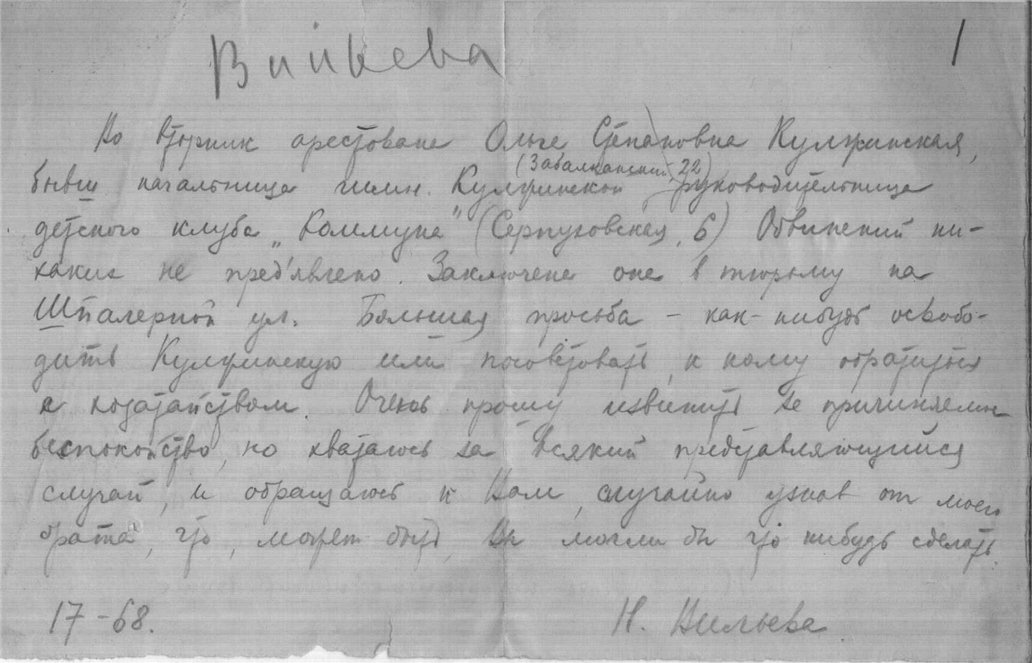 1
Во вторник арестована Ольга Степановна Кулжинская,
(Забалканский, 22)
бывш начальница гимн. Кулжинской руководительница
детского клуба „Коммуна" (Серпуховская, 6) Обвинений ни-
каких не пред'явлено. Заключена она в тюрьму на
Шпалерной ул. Большая просьба – как-нибудь освобо-
дить Кулжинскую или посоветовать, к кому обратиться
с ходатайством. Очень прошу извинить за причиняемое
беспокойство, но хватаюсь за всякий представляющийся
случай, и обращаюсь к Вам, случайно узнав от моего
брата, что, может быть, Вы могли бы что нибудь сделать.
17-68.
Н.